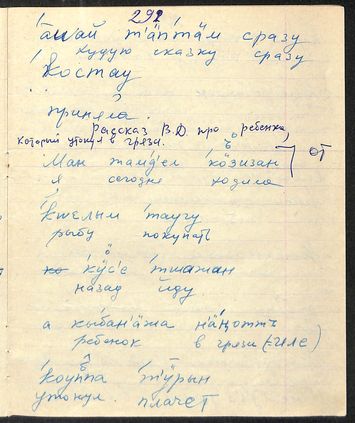 292
а̄шай т'ӓп'тӓм сразу
худую сказку сразу
'костау
приняла.
Рассказ В.Д. про ребенка,
который утонул в грязи.
'Ман тамд'ел 'кӧзизан ] от
я сегодня ходила
'кwелым 'таугу
рыбу покупать
'кӱс'е 'тшажан
назад иду.
а кыбан'ӓжа н'ӓӈоттъ
ребенок в грязи (-иле)
'коуппа 'т'ӱрын
утонул. плачет